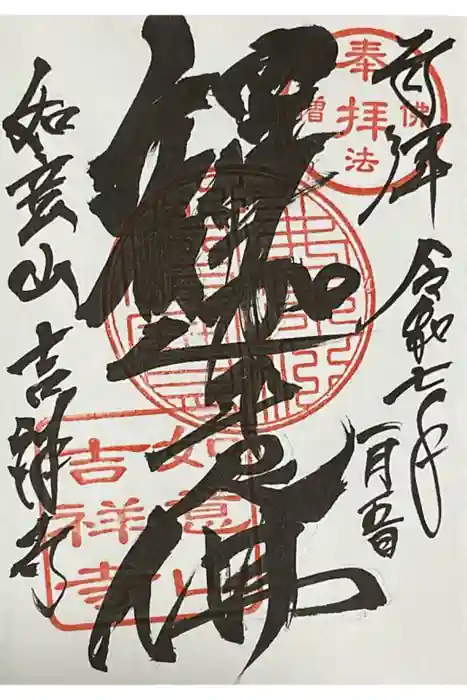 拝
令和七年
一月五日
奉拝
佛法僧
釋迦牟尼佛
如意山
吉祥寺
如意山 吉祥寺